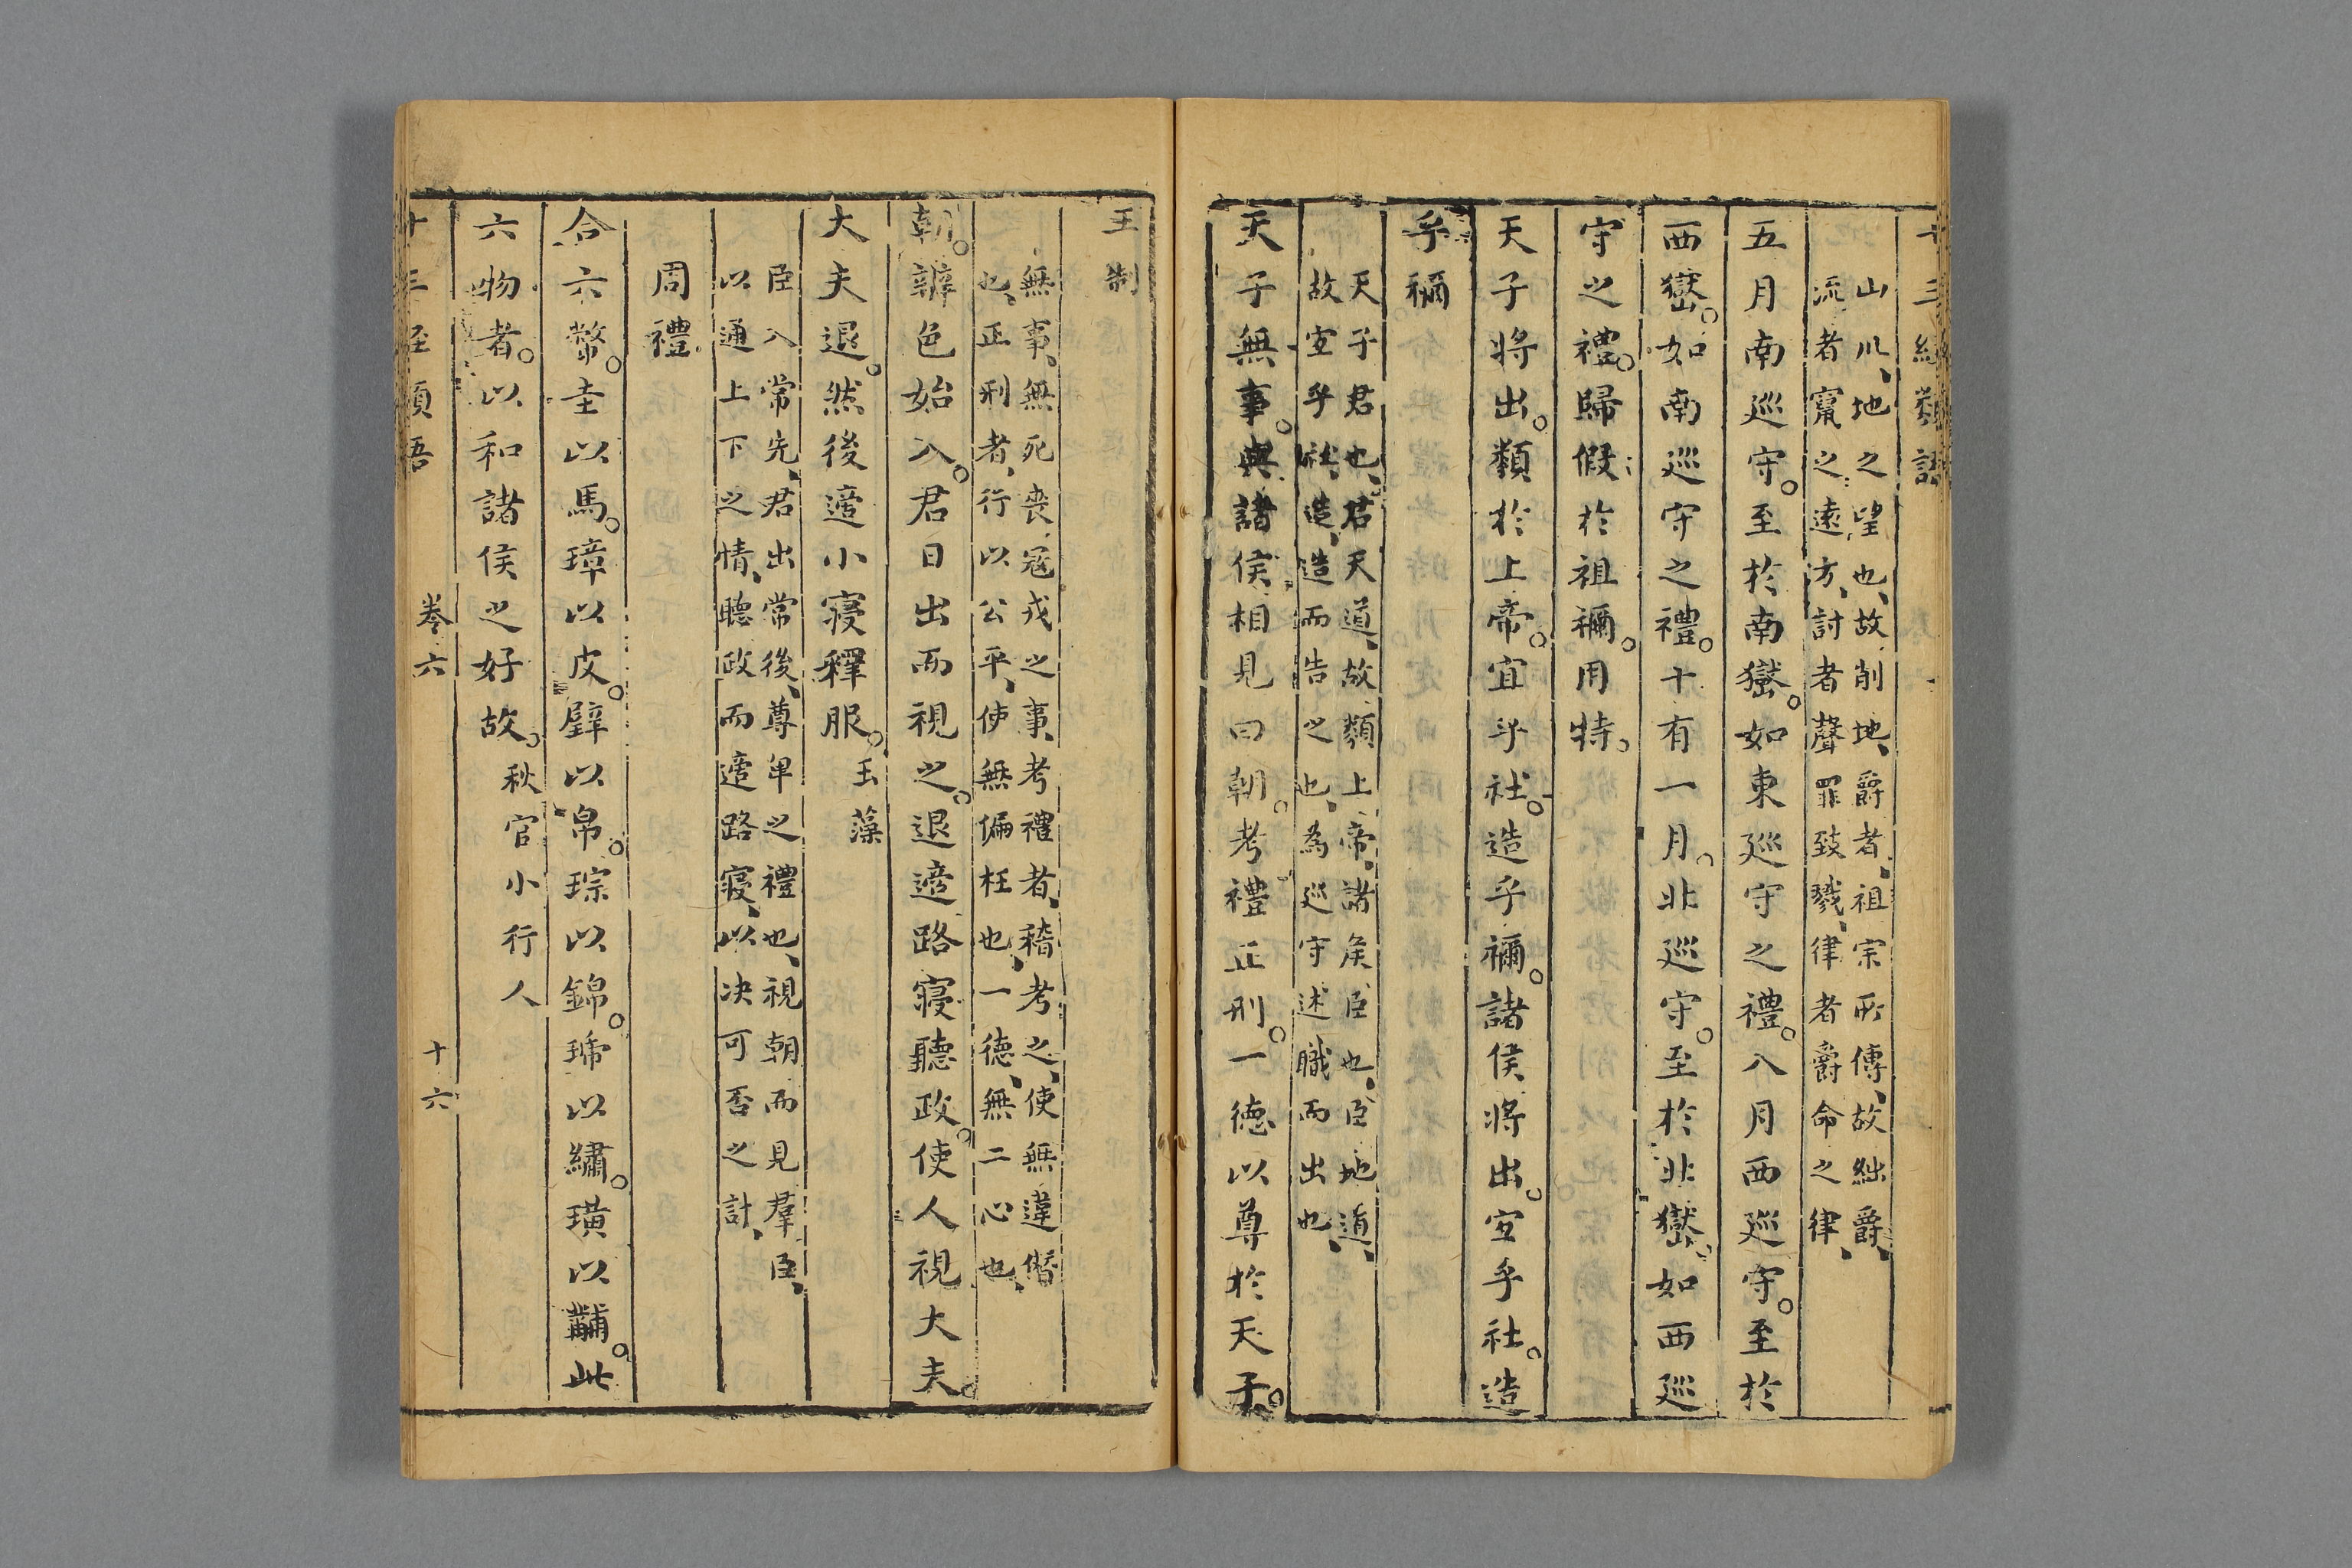 十三經類語
山川、地之望也、故削地、爵者、祖宗所傳、故絀爵、
流者竄之遠方、討者聲罪致戮、律者爵命之律、
五月南廵守。至於南嶽。如東廵守之禮。八月西廵守。至於
西嶽。如南廵守之禮。十有一月。北廵守。至於北嶽。如西廵
守之禮。歸假於祖禰。用特。
天子將出。類於上帝。宜乎社。造乎禰。諸侯將出。宜乎社。造
乎禰
天子君也、君天道、故類上帝、諸矦臣也、臣地道、
故宜乎社、造、造而告之也、為廵守述職而出也、
天子無事。與諸侯相見曰朝。考禮正刑。一德以尊於天子。
王制
無事、無死喪寇戎之事、考禮者、稽考之、使無違僭
也、正刑者、行以公平、使無偏枉也、一德、無二心也、
朝。辨色始入。君日出而視之。退適路寢聽政。使人視大夫。
大夫退。然後適小寢釋服。玉藻
臣入常先、君出常後、尊卑之禮也、視朝而見羣臣、
以通上下之情、聽政而適路寢、以决可否之計、
周禮
合六幣。圭以馬。璋以皮。璧以帛。琮以錦。琥以繡。璜以黼。此
六物者。以和諸侯之好故。秋官小行人
卷六 十六